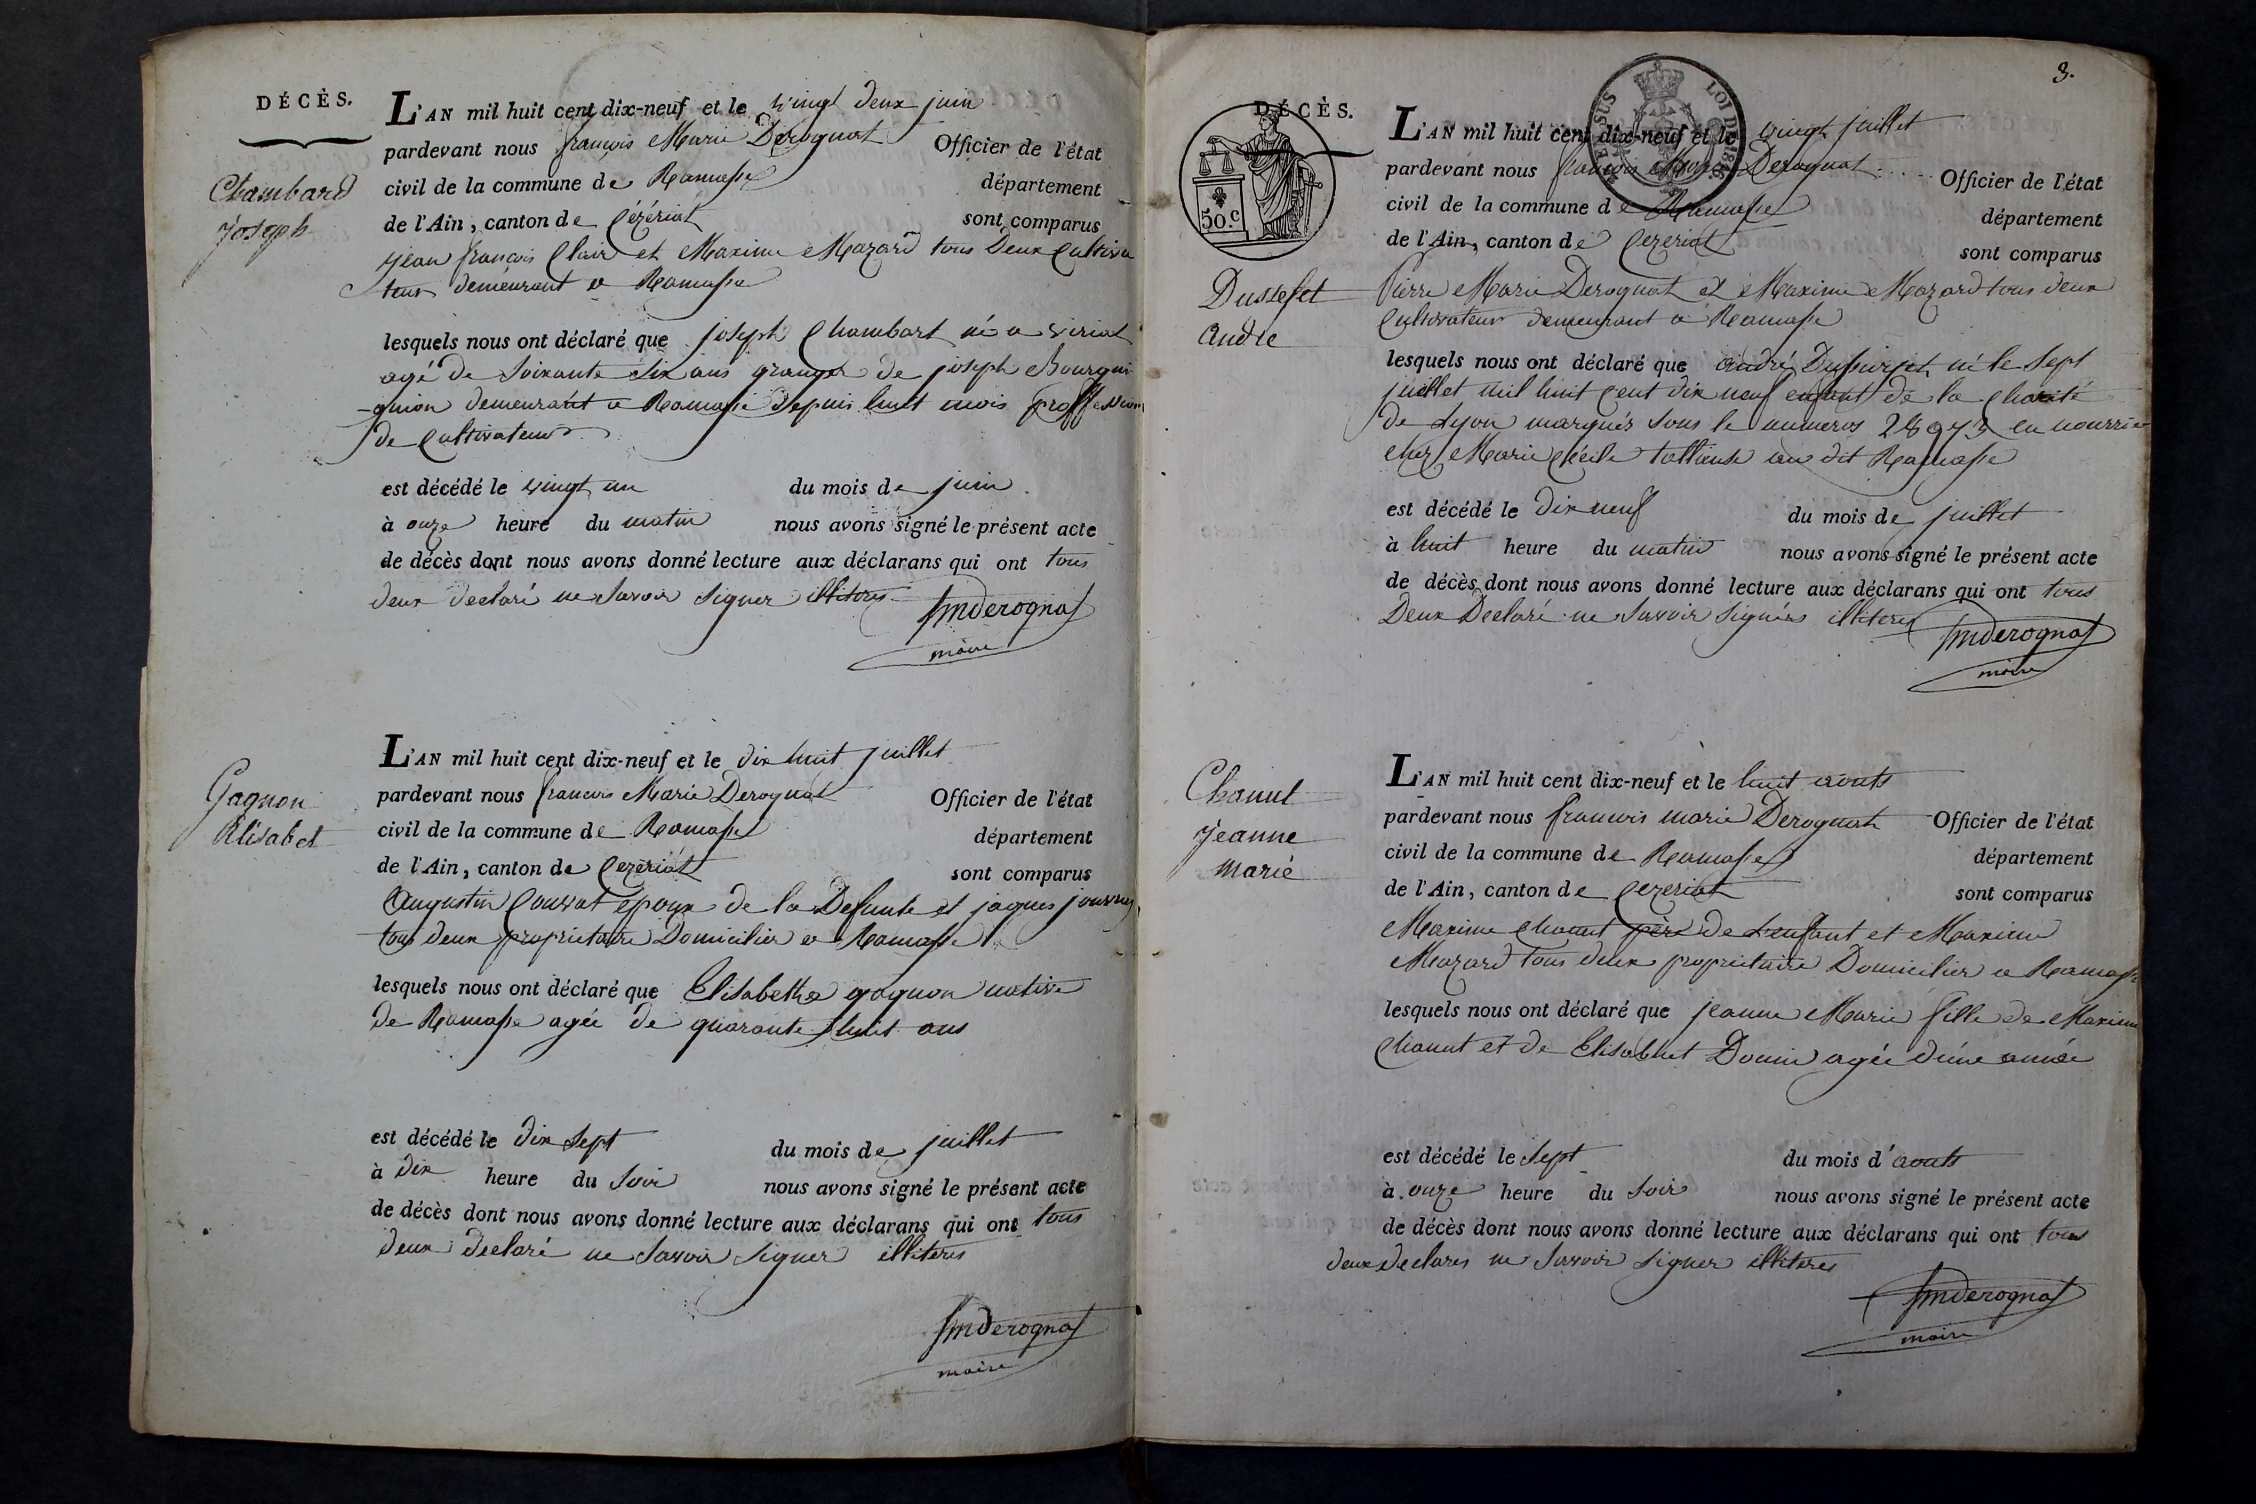 DÉCÈS.
Chambard
Joseph
L'AN mil huit cent dix-neuf et le vingt deux juin
pardevant nous françois Marie Derognat Officier de l'état
civil de la commune de Ramasse département
de l'Ain, canton de Cézériat sont comparus
jean françois Clair et Maxime Mazard tous deux Cultiva
teur demeurant a Ramasse
lesquels nous ont déclaré que joseph Chambart né a viriat
agé de soixante six ans granger de joseph Bourgui
gnion demeurant a Ramasse depuis huit mois proffession
de Cultivateur
est décédé le vingt un du mois de juin
à onze heure du matin nous avons signé le présent acte
de décès dont nous avons donné lecture aux déclarans qui ont tous
deux declaré ne savoir signer illiteres
fmderognat
maire
Gagnon
Elisabet
L'AN mil huit cent dix-neuf et le dix huit juillet
pardevant nous francois Marie Derognat Officier de l'état
civil de la commune de Ramasse département
de l'Ain, canton de Cezériat sont comparus
Augustin Convat epoux de la Defunte et jaques
tous deux proprietaire Domicilier a Ramasse
lesquels nous ont déclaré que Elisabethe gagnon native
de Ramasse agée de quarante huit ans
est décédé le dix sept du mois de juillet
à dix heure du soir nous avons signé le présent acte
de décès dont nous avons donné lecture aux déclarans qui ont tous
deux declaré ne savoir signer illiteres
fmderognat
maire
3.
DÉCÈS.
50.c
LOI DE 1816
Dussefet
Andre
L'AN mil huit cent dix-neuf et le vingt juillet
pardevant nous francois Marie Derognat Officier de l'état
civil de la commune de Ramasse département
de l'Ain, canton de Cezeriat sont comparus
Pierre Marie Derognat et Maxime Mazard tous deux
Cultivateur demeurant a Ramasse
lesquels nous ont déclaré que andré né le sept
juillet mil huit cent dix neuf enfant de la charité
de Lyon marqués sous le numeros 28973 en nourrice
chez Marie Cécile au dit Ramasse
est décédé le dix neuf du mois de juillet
à huit heure du matin nous avons signé le présent acte
de décès dont nous avons donné lecture aux déclarans qui ont tous
Deux Declaré ne savoir signérs illiteres
fmderognat
maire
Chanut
jeanne
marié
L'AN mil huit cent dix-neuf et le huit aouts
pardevant nous francois marie Derognat Officier de l'état
civil de la commune de Ramasse département
de l'Ain, canton de Cezeriat sont comparus
Maxime Chanut père de L'enfant et Maxime
Mazard tous deux proprietaire Domicilier a Ramasse
lesquels nous ont déclaré que jeanne Marie fille de Maxime
Chanut et de Elisabhet Donin agée d'une année
est décédé le sept du mois d'aouts
à onze heure du soir nous avons signé le présent acte
de décès dont nous avons donné lecture aux déclarans qui ont tous
deux declares ne savoir signer illiteres
fmderognat
maire